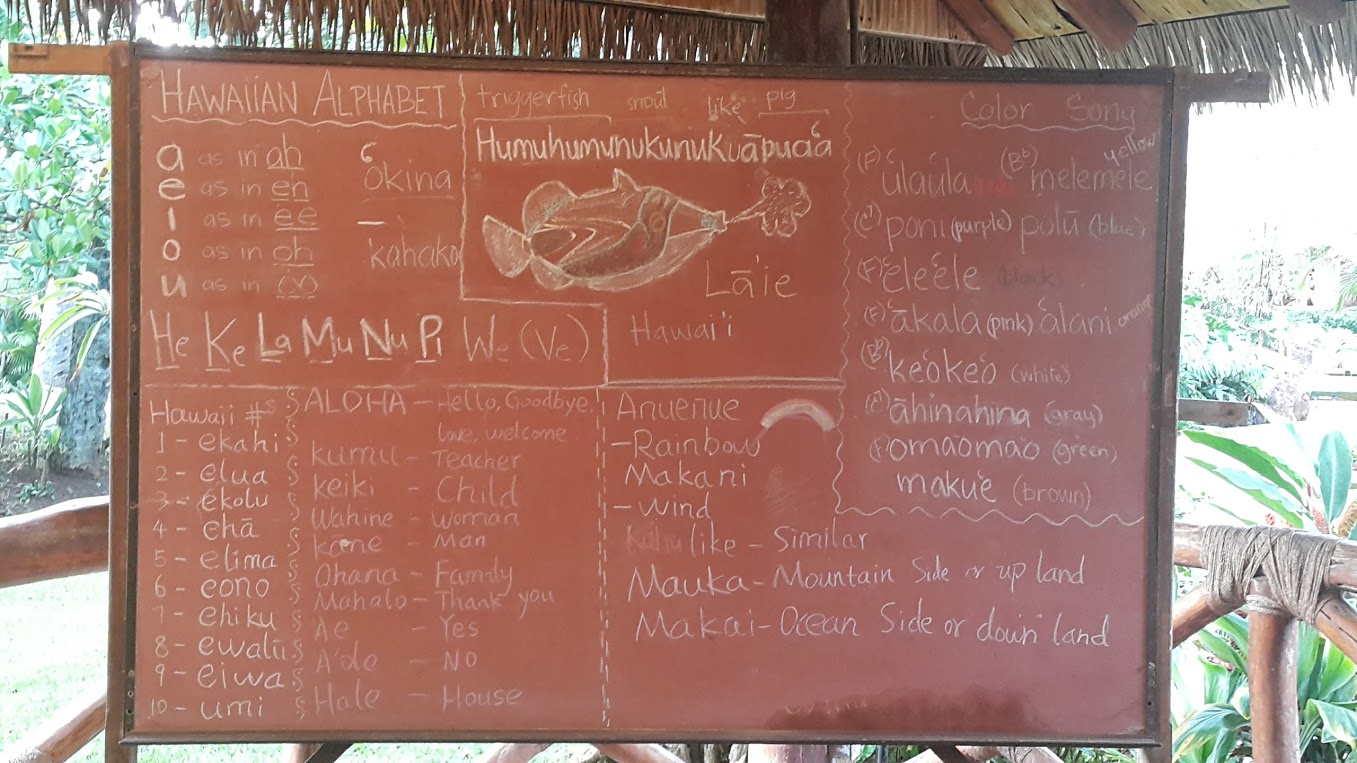 HAWAIIAN ALPHABET
a as in ah
e as in en
i as in ee
o as in oh
u as in oo
ʻokina
kahako
He Ke La Mu Nu Pi We (Ve)
triggerfish snout like pig
Humuhumunukunukuāpuaʻa
Lā'ie
Hawai'i
Color Song
(F) ʻulaʻula (Bb) melemele yellow
poni (purple) polū (blue)
(F) ʻeleʻele (black)
(F) ʻākala (pink) ʻalani orange
(Bb) keʻokeʻo (white)
āhinahina (gray)
(F) ʻomaʻomaʻo (green)
makuʻe (brown)
Hawaii #s
1 - ekahi
2 - elua
3 - ekolu
4 - ehā
5 - elima
6 - eono
7 - ehiku
8 - ewalu
9 - eiwa
10 - umi
ALOHA - Hello, Goodbye,
love, welcome
kumu - Teacher
keiki - Child
Wahine - Woman
kāne - Man
Ohana - Family
Mahalo - Thank you
'Ae - Yes
A'ole - NO
Hale - House
Anuenue
-Rainbow
Makani
-Wind
like - Similar
Mauka - Mountain Side or up land
Makai - Ocean Side or down land